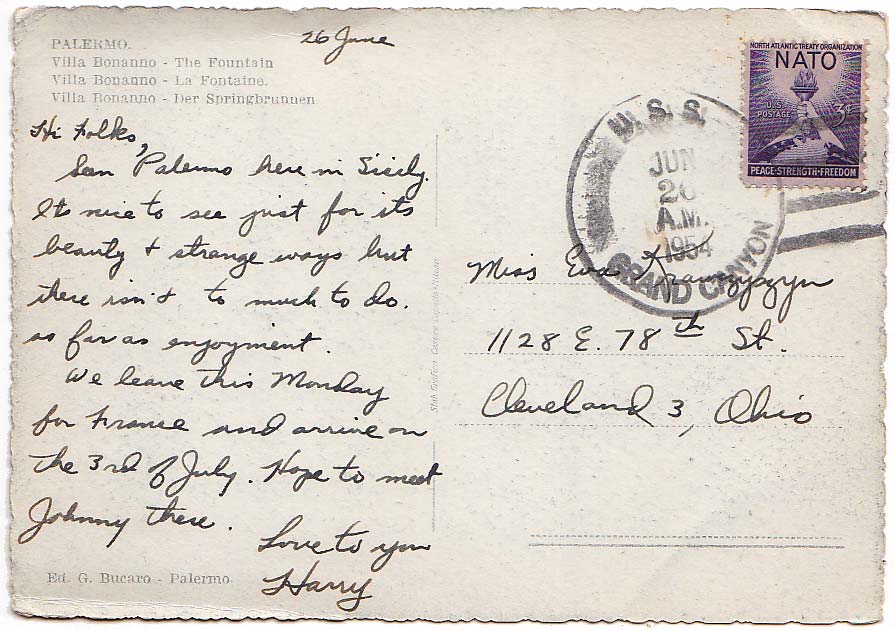 PALERMO.
Villa Bonanno - The Fountain
Villa Bonanno - La Fontaine.
Villa Bonanno - Der Springbrunnen
26 June
Hi Folks,
Seen Palermo here in Sicily.
Its nice to see just for its
beauty & strange ways but
there isn't to much to do.
as far as enjoyment.
We leave this Monday
for France and arrive on
the 3rd of July. Hope to meet
Johnny there.
Love to you
Harry
Ed. G. Bucaro - Palermo
NORTH ATLANTIC TREATY ORGANIZATION
NATO
U.S. POSTAGE
3¢
PEACE·STRENGTH·FREEDOM
U.S.S.
JUN
26
A.M.
1954
GRAND CANYON
Miss Eva
1128 E. 78th St.
Cleveland 3, Ohio